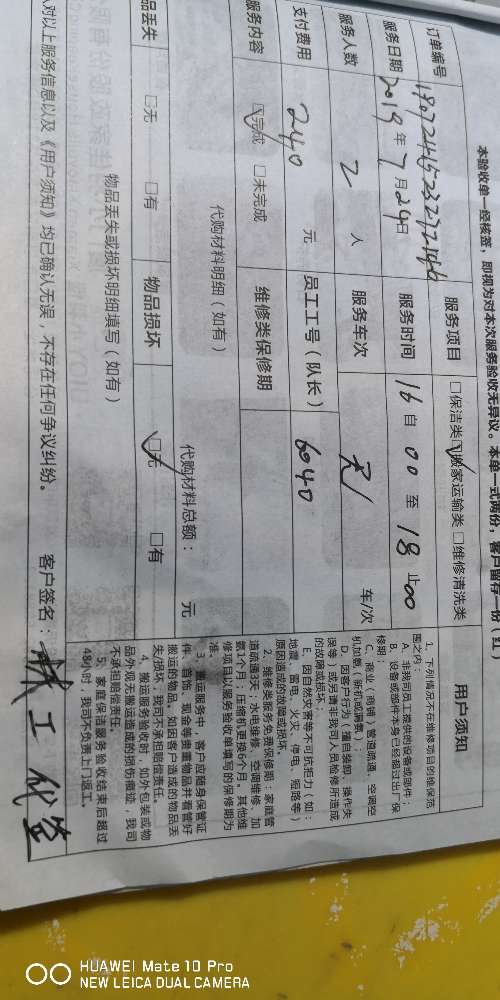 本验收单一经核签，即视为对本次服务验收无异议。本单一式两份，客户留存一份（红）
订单编号
服务项目 □保洁类 ☑搬家运输类 □维修清洗类
服务日期 2019年7月24日 服务时间 16自00至18止00
服务人数 2 人 服务车次 无 车/次
支付费用 240 元 员工工号（队长） 6040
服务内容 ☑完成 □未完成 维修类保修期
代购材料明细（如有）
代购材料总额： 元
物品丢失 □无 □有 物品损坏 ☑无 □有
物品丢失或损坏明细填写（如有）
对以上服务信息以及《用户须知》均已确认无误，不存在任何争议纠纷。 客户签名：
工代签
用户须知
1、下列情况不在维修项目的保保范
围之内：
A、非我司员工提供的设备或部件；
B、设备或部件本身已经超过出厂保
修期；
C、商业（商铺）管道疏通，空调空
机加氨（新机或漏氨）；
D、因客户行为（擅自装卸、操作失
误等）或另请非我司人员检修所造成
的故障或损坏；
E、因自然灾害等不可抗拒力（如：
地震、雷电、火灾、停电、短路等）
原因造成的故障或损坏。
2、维修类服务免费保修期：家庭管
道疏通3天；水电维修、空调维修、加
氨1个月；压缩机更换6个月。其他维
修项目以服务验收单填写的保修期为
准。
3、搬运服务中，客户应随身保管证
件、首饰、现金等贵重物品并看管好
搬运的物品。如因客户造成的物品丢
失/损坏，我司不承担赔偿责任。
4、搬运服务验收时，如外包装或物
品外观无搬运造成的损伤痕迹，我司
不承担赔偿责任。
5、家庭保洁服务验收结束后超过
48小时，我司不负责上门返工。
HUAWEI Mate 10 Pro
NEW LEICA DUAL CAMERA